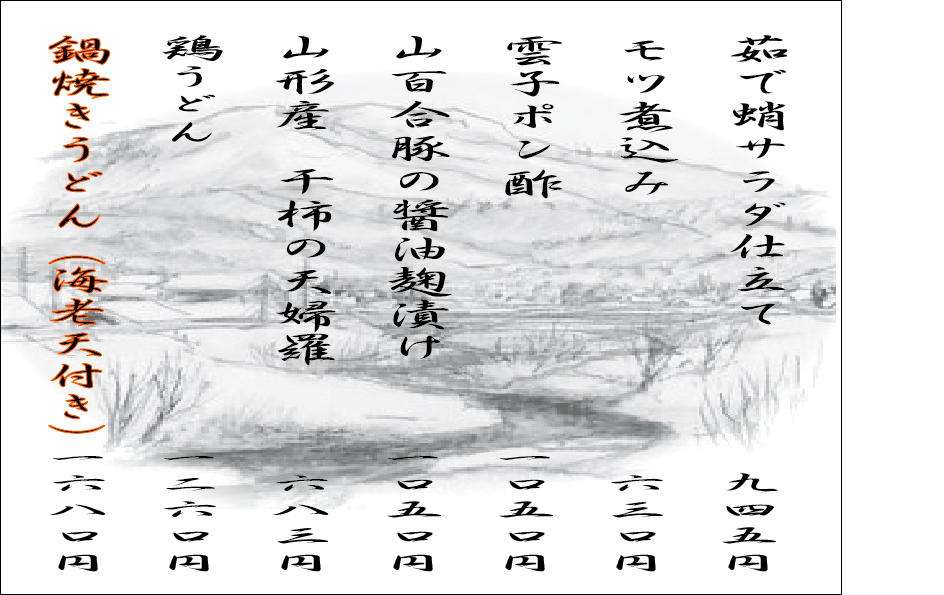 茹で蛸サラダ仕立て 九四五円
モツ煮込み 六三〇円
雲子ポン酢 一〇五〇円
山百合豚の醤油麹漬け 一〇五〇円
山形産 干柿の天婦羅 六八三円
鶏うどん 一二六〇円
鍋焼きうどん（海老天付き） 一六八〇円